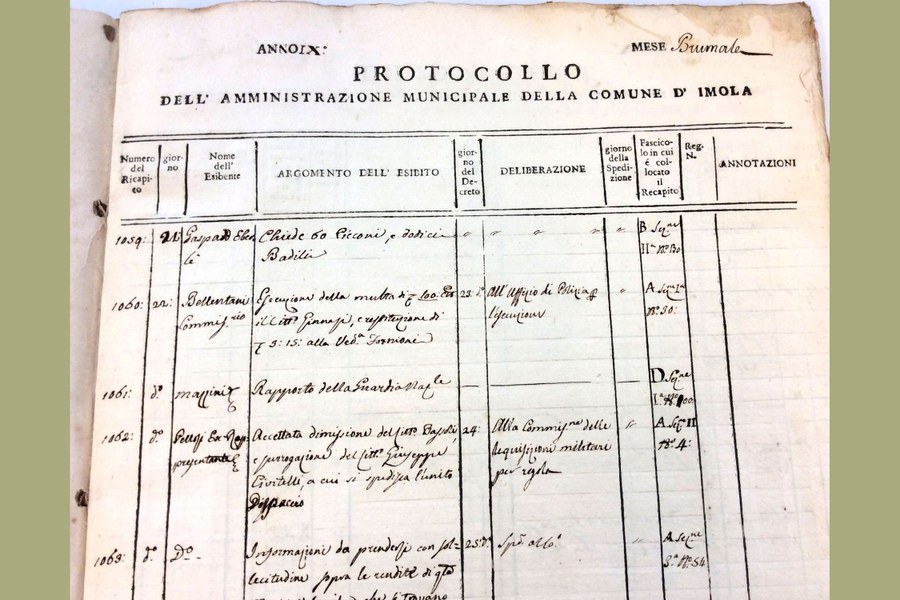 ANNO IX.° MESE Brumale
PROTOCOLLO
DELL' AMMINISTRAZIONE MUNICIPALE DELLA COMUNE D' IMOLA
Numero del Ricapito
giorno
Nome dell' Esibente
ARGOMENTO DELL' ESIBITO
giorno del Decreto
DELIBERAZIONE
giorno della Spedizione
Fascicolo in cui é collocato il Recapito
Reg. N.
ANNOTAZIONI
1059: 21: Gaspard Eber Chiede 60 Picconi, e dodici " " " " " B Sez.ne
lè Badili II.a N.° 130
1060: 22: Bellentani Esecuzione della multa di 100: 23: d.° All'Uffizio di Polizia " A Sez.ne
Commis.rio il Citt.° Ginnasi, e restituzione di l'esecuzione N.° 30:
3: 15: alla Ved.a
1061: d.° Mazzini Rapporto della Guardia Naz.le D Sez.ne
I.a
1062: d.° Accettata dimissione del Citt.° 24: Alla Commis.ne delle " A Sez. II
presentante e surrogazione del Citt.° Giuseppe requisizioni militari N.° 4:
a cui si spedisca l'unito per regola
Dispaccio
1063: d.° D.° Informazioni da prendersi con sol= 25: d.° A Sez.ne
lecitudine sopra le rendite di q.to N.° 54
che si trovano